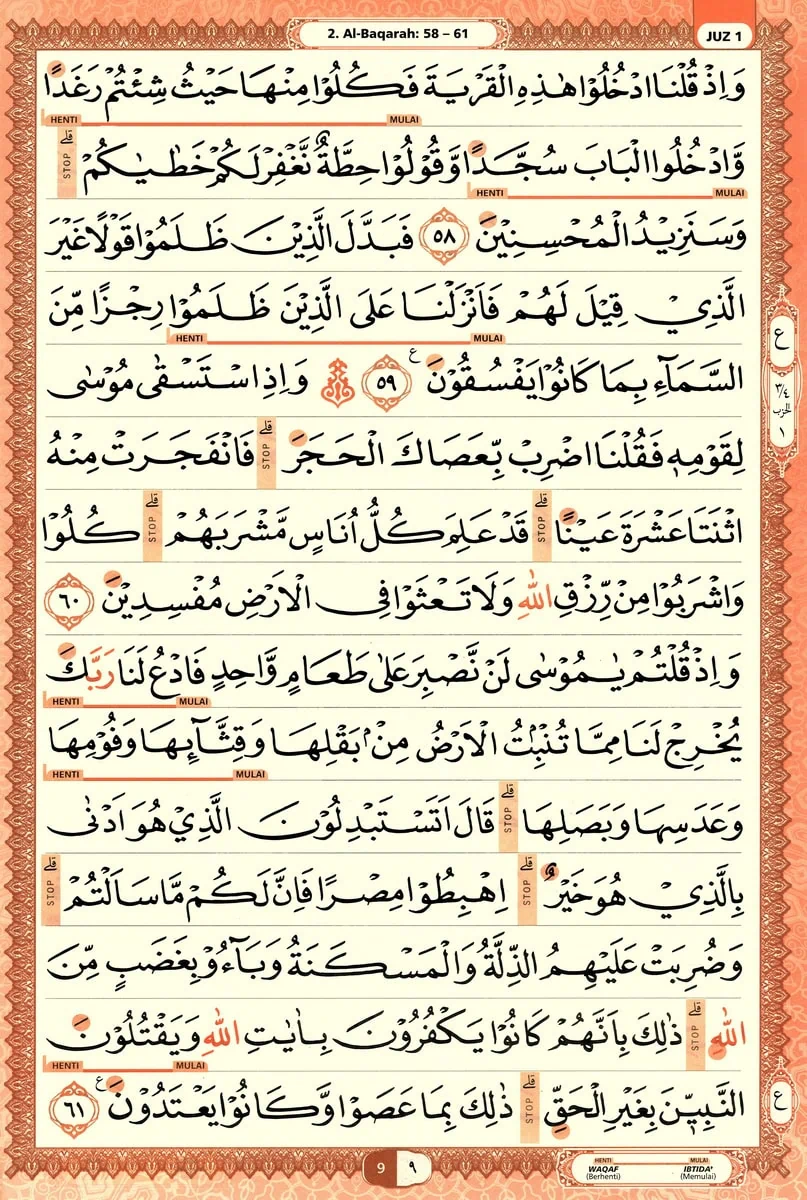 2. Al-Baqarah: 58 – 61
JUZ 1
وَاِذْ قُلْنَا ادْخُلُوْا هٰذِهِ الْقَرْيَةَ فَكُلُوْا مِنْهَا حَيْثُ شِئْتُمْ رَغَدًا
HENTI MULAI
وَّادْخُلُوا الْبَابَ سُجَّدًا وَّقُوْلُوْا حِطَّةٌ نَّغْفِرْ لَكُمْ خَطٰيٰكُمْ ۗ STOP
HENTI MULAI
وَسَنَزِيْدُ الْمُحْسِنِيْنَ ٥٨ فَبَدَّلَ الَّذِيْنَ ظَلَمُوْا قَوْلًا غَيْرَ
الَّذِيْ قِيْلَ لَهُمْ فَاَنْزَلْنَا عَلَى الَّذِيْنَ ظَلَمُوْا رِجْزًا مِّنَ
HENTI MULAI
السَّمَاۤءِ بِمَا كَانُوْا يَفْسُقُوْنَ ࣖ ٥٩ ۞ وَاِذِ اسْتَسْقٰى مُوْسٰى
ع
٣/٤
الحزب
١
لِقَوْمِهٖ فَقُلْنَا اضْرِبْ بِّعَصَاكَ الْحَجَرَ ۗ STOP فَانْفَجَرَتْ مِنْهُ
اثْنَتَا عَشْرَةَ عَيْنًا ۗ STOP قَدْ عَلِمَ كُلُّ اُنَاسٍ مَّشْرَبَهُمْ ۗ STOP كُلُوْا
وَاشْرَبُوْا مِنْ رِّزْقِ اللّٰهِ وَلَا تَعْثَوْا فِى الْاَرْضِ مُفْسِدِيْنَ ٦٠
وَاِذْ قُلْتُمْ يٰمُوْسٰى لَنْ نَّصْبِرَ عَلٰى طَعَامٍ وَّاحِدٍ فَادْعُ لَنَا رَبَّكَ
HENTI MULAI
يُخْرِجْ لَنَا مِمَّا تُنْۢبِتُ الْاَرْضُ مِنْۢ بَقْلِهَا وَقِثَّاۤىِٕهَا وَفُوْمِهَا
HENTI MULAI
وَعَدَسِهَا وَبَصَلِهَا ۗ STOP قَالَ اَتَسْتَبْدِلُوْنَ الَّذِيْ هُوَ اَدْنٰى
بِالَّذِيْ هُوَ خَيْرٌ ۗ STOP اِهْبِطُوْا مِصْرًا فَاِنَّ لَكُمْ مَّا سَاَلْتُمْ ۗ STOP
وَضُرِبَتْ عَلَيْهِمُ الذِّلَّةُ وَالْمَسْكَنَةُ وَبَاۤءُوْ بِغَضَبٍ مِّنَ
اللّٰهِ ۗ STOP ذٰلِكَ بِاَنَّهُمْ كَانُوْا يَكْفُرُوْنَ بِاٰيٰتِ اللّٰهِ وَيَقْتُلُوْنَ
HENTI MULAI
النَّبِيّٖنَ بِغَيْرِ الْحَقِّ ۗ STOP ذٰلِكَ بِمَا عَصَوْا وَّكَانُوْا يَعْتَدُوْنَ ࣖ ٦١
ع
9 ٩
HENTI MULAI
WAQAF IBTIDA'
(Berhenti) (Memulai)